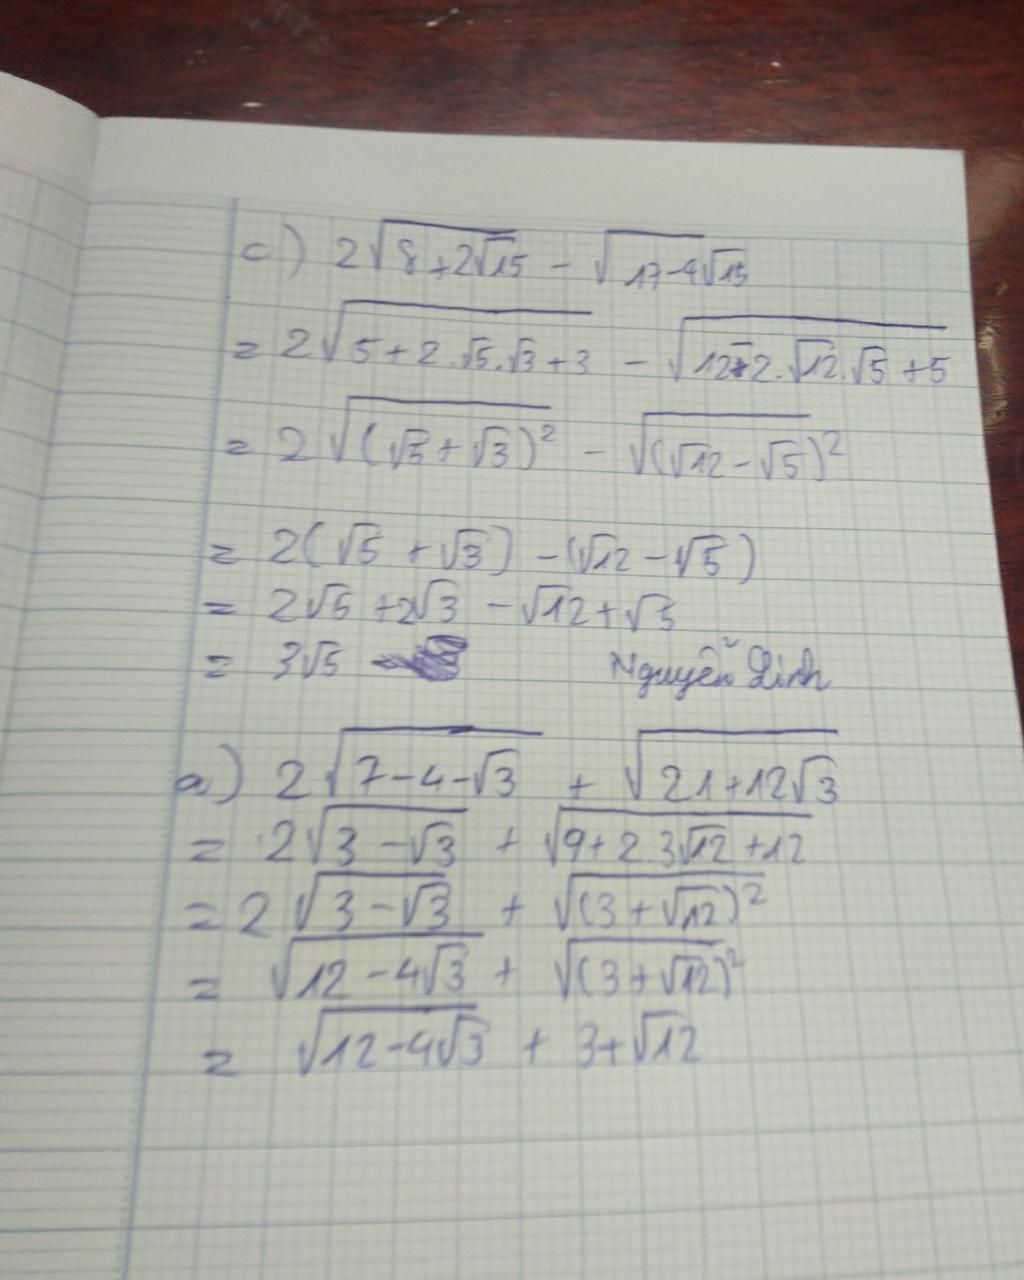 c) 2√(8+2√15) - √(17-4√15)
= 2√(5+2.√5.√3+3) - √(12-2.√12.√5+5)
= 2√((√5+√3)²) - √((√12-√5)²)
= 2(√5+√3) -(√12-√5)
= 2√5+2√3-√12+√5
= 3√5
Nguyễn Linh
a) 2√(7-4-√3) + √(21+12√3)
= 2√(3-√3) + √(9+2.3√12+12)
= 2√(3-√3) + √((3+√12)²)
= √(12-4√3) + √((3+√12)²)
= √(12-4√3) + 3+√12